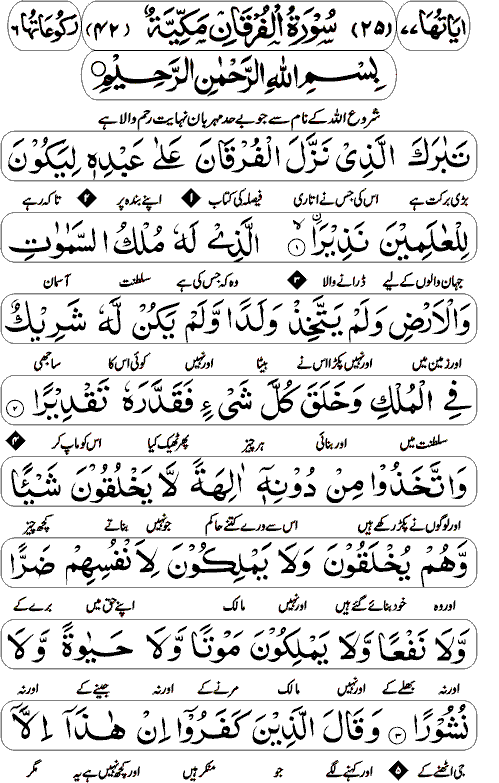 اٰيَاتُهَا ٧٧ (٢٥) سُوْرَةُ الْفُرْقَانِ مَكِّيَّةٌ (٤٢) رُكُوْعَاتُهَا ٦
بِسْمِ اللّٰهِ الرَّحْمٰنِ الرَّحِيْمِ
شروع اللہ کے نام سے جو بے حد مہربان نہایت رحم والا ہے
تَبٰرَكَ الَّذِىْ نَزَّلَ الْفُرْقَانَ عَلٰى عَبْدِهٖ لِيَكُوْنَ
بڑی برکت ہے اس کی جس نے اتاری فیصلہ کی کتاب ۱ اپنے بندہ پر ۲ تاکہ رہے
لِلْعٰلَمِيْنَ نَذِيْرَا ۙ‏ ١ الَّذِىْ لَهٗ مُلْكُ السَّمٰوٰتِ
جہان والوں کے لیے ڈرانے والا ۳ وہ کہ جس کی ہے سلطنت آسمان
وَالْاَرْضِ وَلَمْ يَتَّخِذْ وَلَدًا وَّلَمْ يَكُنْ لَّهٗ شَرِيْكٌ
اور زمین میں اور نہیں پکڑا اس نے بیٹا اور نہیں کوئی اس کا ساجھی
فِى الْمُلْكِ وَخَلَقَ كُلَّ شَىْءٍ فَقَدَّرَهٗ تَقْدِيْرًا ٢
سلطنت میں اور بنائی ہر چیز پھر ٹھیک کیا اس کو ماپ کر ۴
وَاتَّخَذُوْا مِنْ دُوْنِهٖۤ اٰلِهَةً لَّا يَخْلُقُوْنَ شَيْـًٔا
اور لوگوں نے پکڑ رکھے ہیں اس سے ورے کتنے حاکم جو نہیں بناتے کچھ چیز
وَّهُمْ يُخْلَقُوْنَ وَلَا يَمْلِكُوْنَ لِاَنْفُسِهِمْ ضَرًّا
اور وہ خود بنائے گئے ہیں اور نہیں مالک اپنے حق میں برے کے
وَّلَا نَفْعًا وَّلَا يَمْلِكُوْنَ مَوْتًا وَّلَا حَيٰوةً وَّلَا
اور نہ بھلے کے اور نہیں مالک مرنے کے اور نہ جینے کے اور نہ
نُشُوْرًا ٣ وَقَالَ الَّذِيْنَ كَفَرُوْۤا اِنْ هٰذَاۤ اِلَّاۤ
جی اٹھنے کے ۵ اور کہنے لگے جو منکر ہیں اور کچھ نہیں ہے یہ مگر